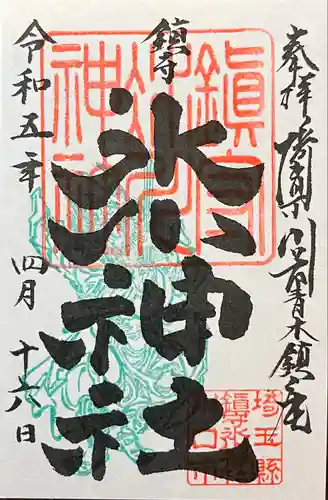 奉拝 埼玉県川口市青木鎮座
鎮守
氷川神社
令和五年 四月 十六日
鎮守
氷川
神社
埼玉縣